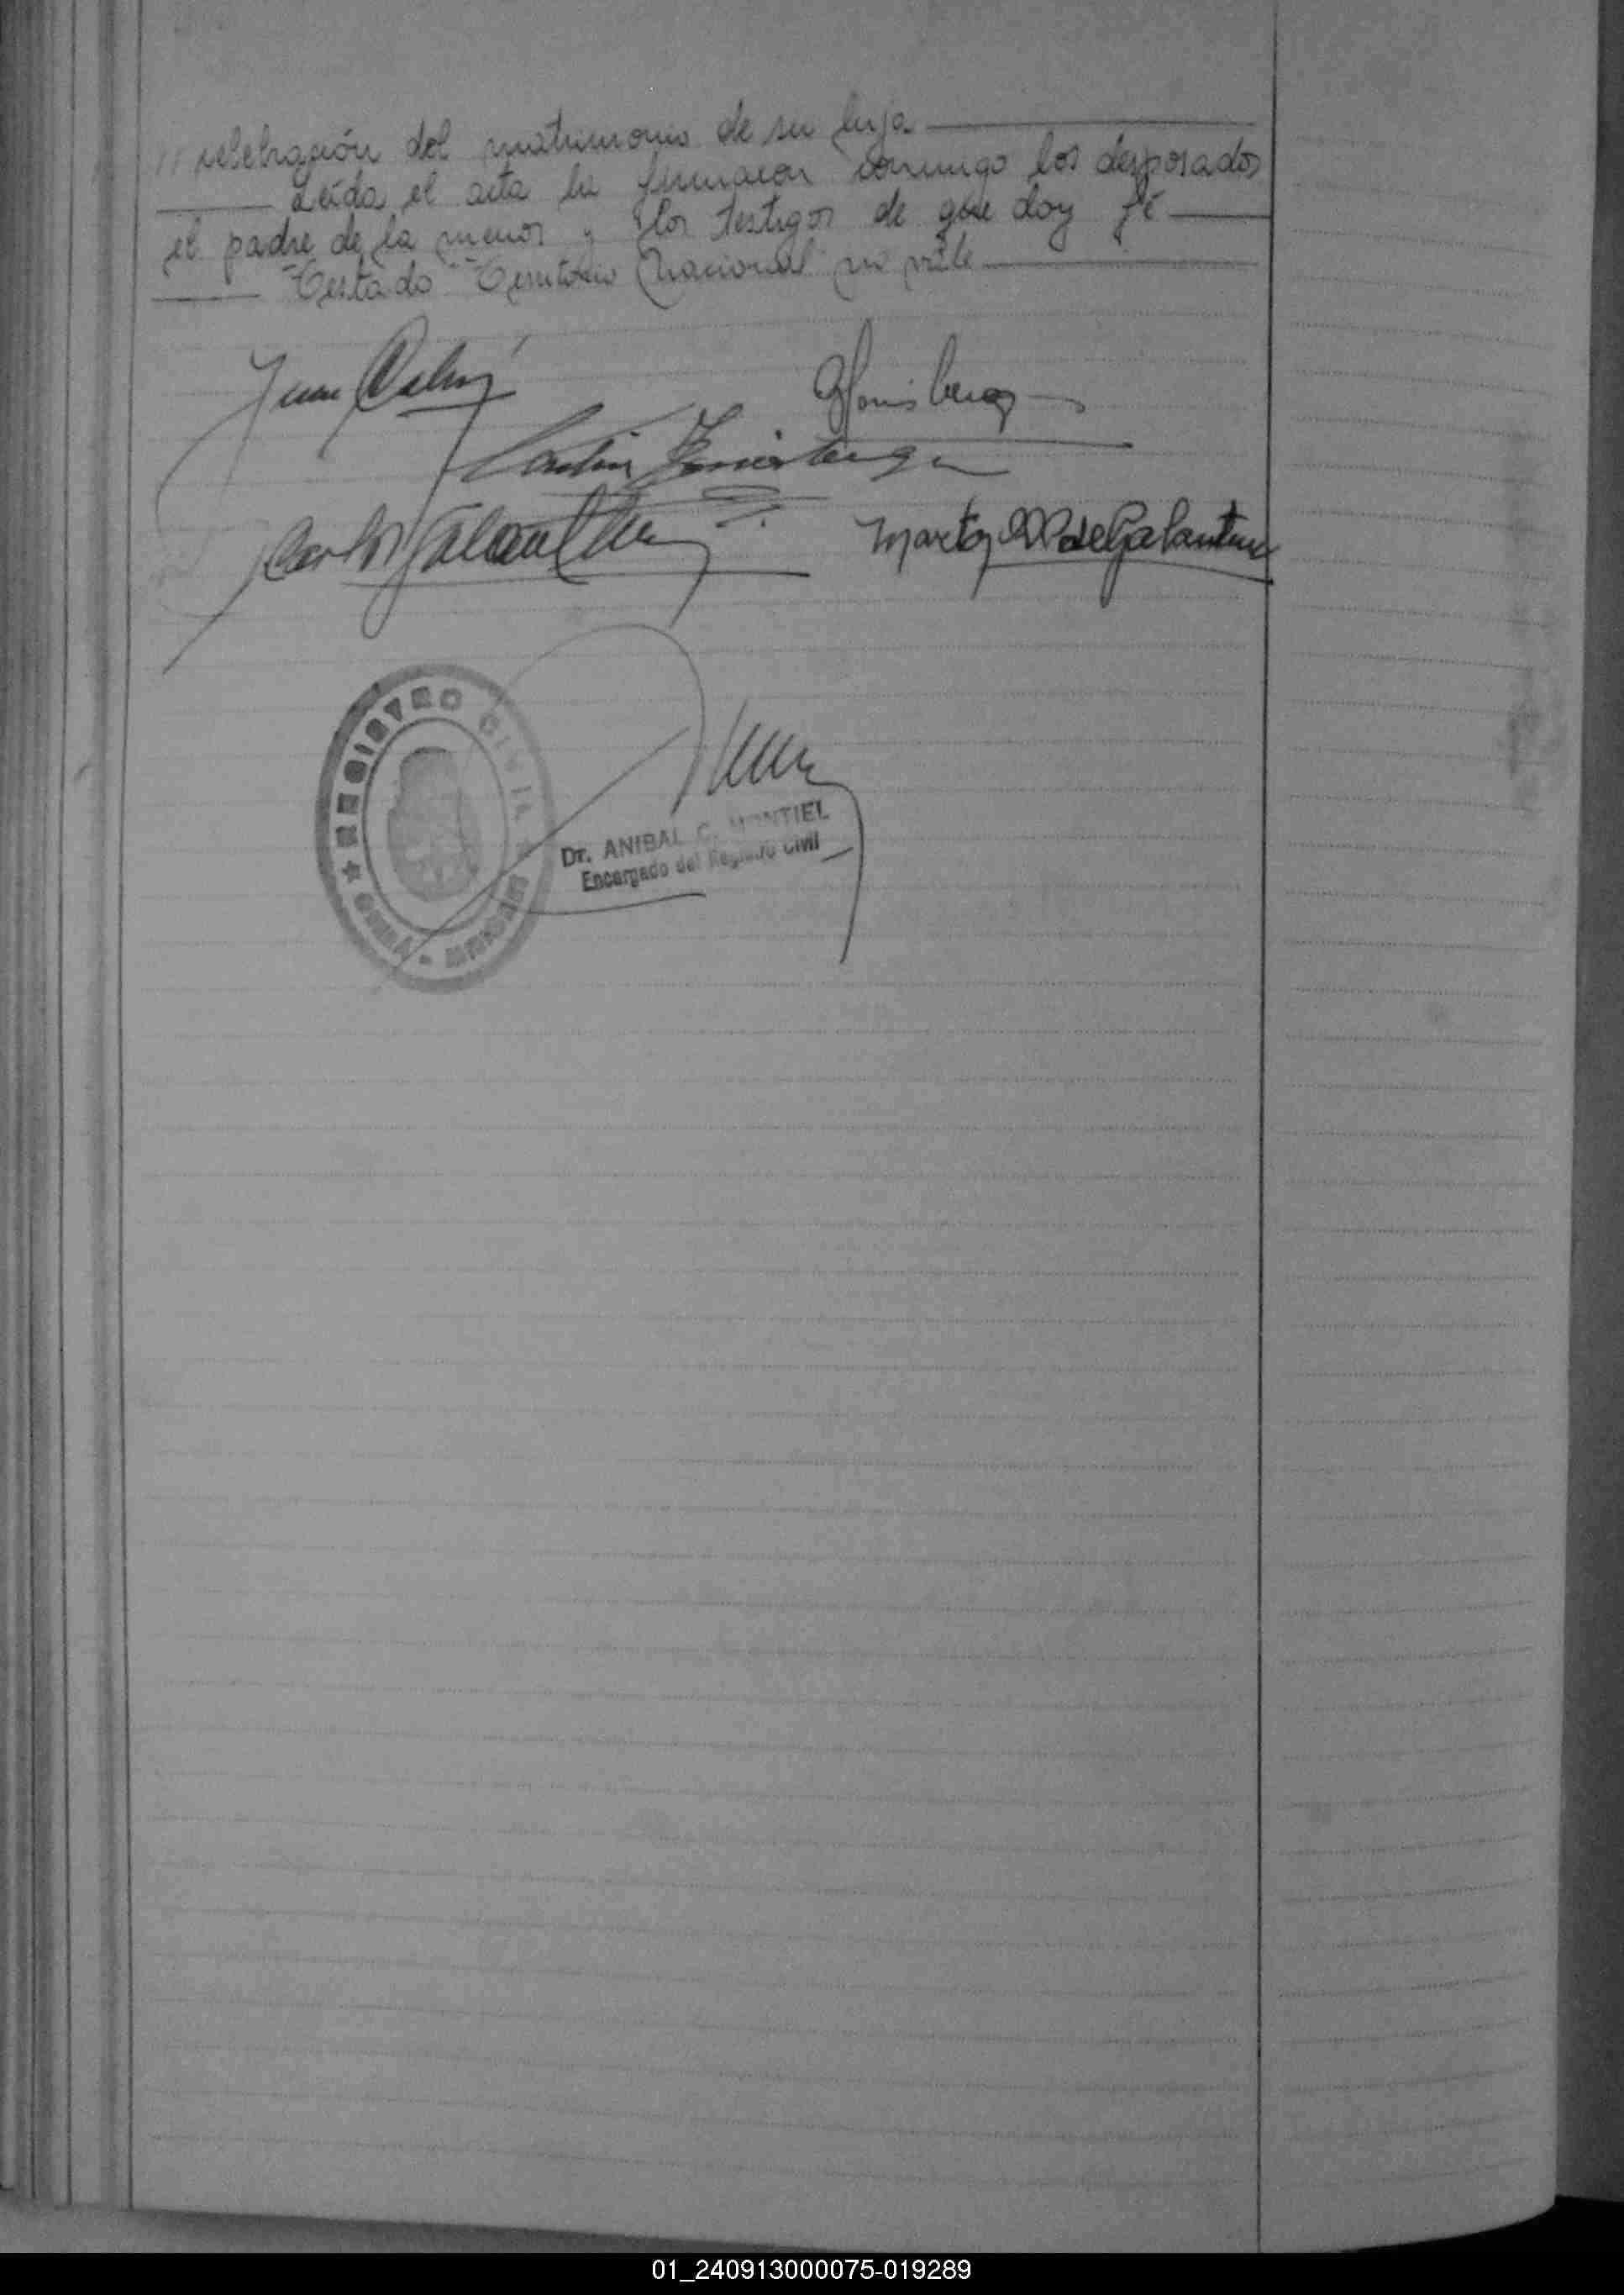 // celebración del matrimonio de su hija
Leída el acta la firmaron conmigo los desposados
el padre de la menor y los testigos de que doy fé
Testado "Territorio Nacional" no vale
Juan
Carlos Galant
Marta M de Galant
REGISTRO CIVIL
Dr. ANIBAL C. MONTIEL
Encargado del Registro Civil
01_240913000075-019289